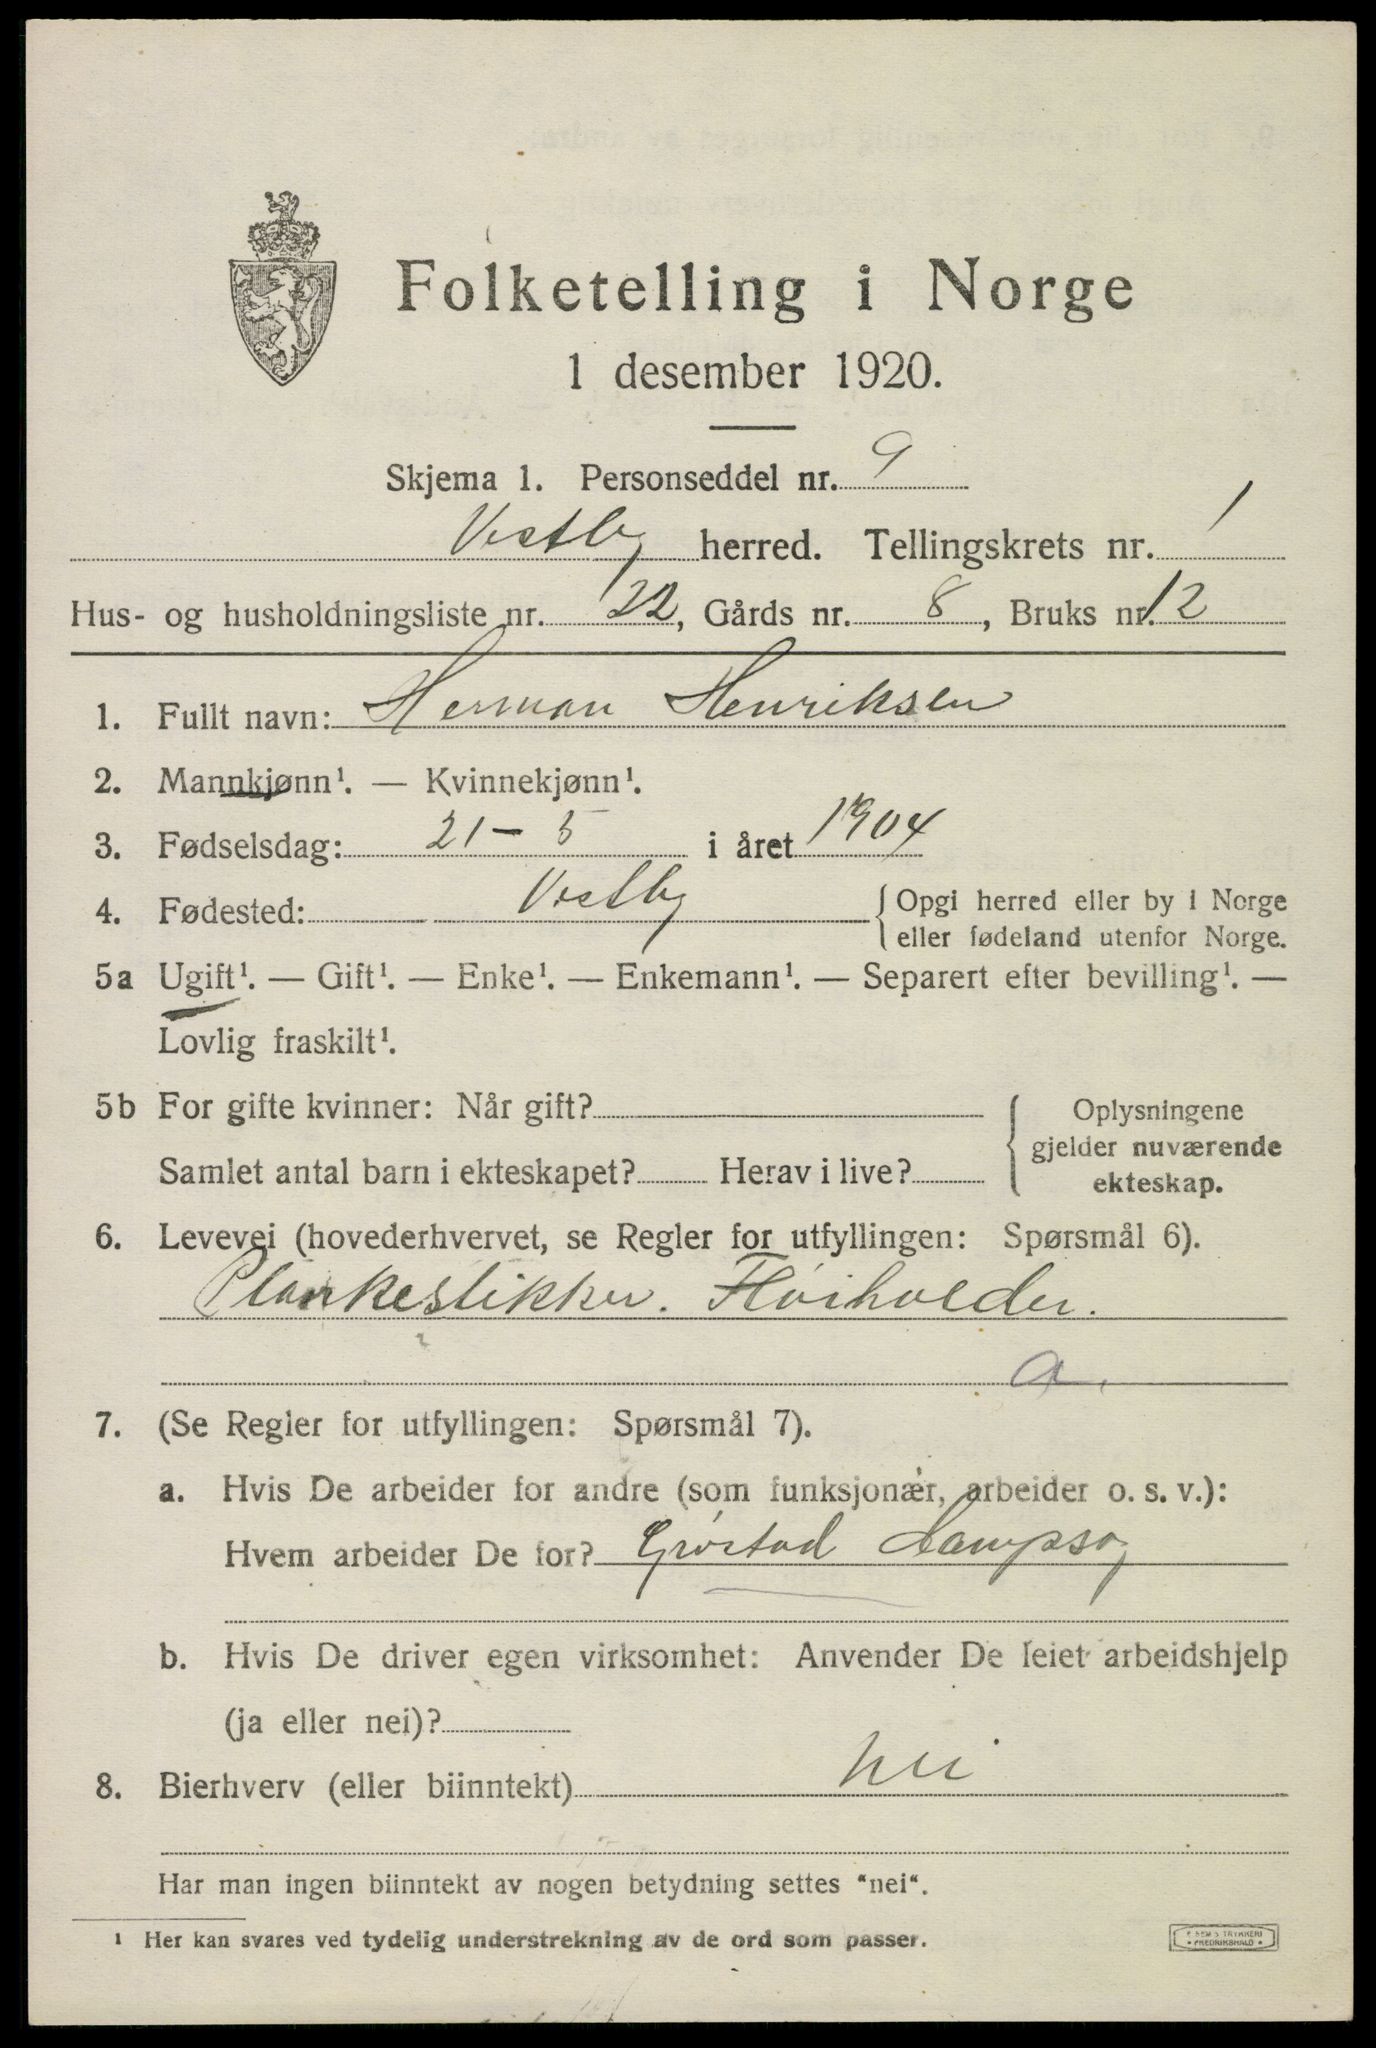 Folketelling i Norge
1 desember 1920.
Skjema 1. Personseddel nr. 9
Vestby herred. Tellingskrets nr. 1
Hus- og husholdningsliste nr. 22, Gårds nr. 8, Bruks nr. 12
1. Fullt navn: Herman Henriksen
2. Mannkjønn¹. — Kvinnekjønn¹.
3. Fødselsdag: 21 - 5 i året 1904
4. Fødested: Vestby {Opgi herred eller by i Norge
eller fødeland utenfor Norge.
5a Ugift¹. — Gift¹. — Enke¹. — Enkemann¹. — Separert efter bevilling¹. —
Lovlig fraskilt¹.
5b For gifte kvinner: Når gift?
Samlet antal barn i ekteskapet? Herav i live?
{Oplysningene
gjelder nuværende
ekteskap.
6. Levevei (hovederhvervet, se Regler for utfyllingen: Spørsmål 6).
Plankestikker. Fløiholder.
a.
7. (Se Regler for utfyllingen: Spørsmål 7).
a. Hvis De arbeider for andre (som funksjonær, arbeider o. s. v.):
Hvem arbeider De for? Grøstad Dampsag
b. Hvis De driver egen virksomhet: Anvender De leiet arbeidshjelp
(ja eller nei)?
8. Bierhverv (eller biinntekt) nei
Har man ingen biinntekt av nogen betydning settes "nei".
¹ Her kan svares ved tydelig understrekning av de ord som passer.